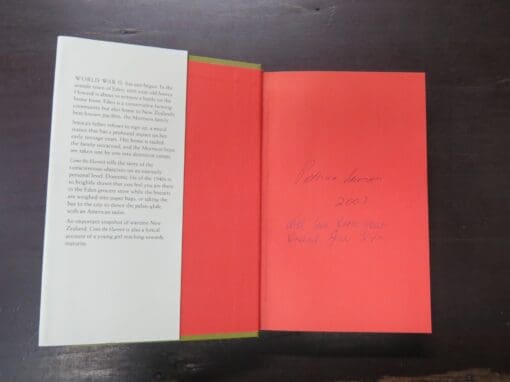 WORLD WAR II has just begun. In the
seaside town of Eden, nine-year-old
Howard is about to witness a battle on the
home front. Eden is a conservative farming
community but also home to New Zealand's
best-known pacifists, the Morrison family.
father refuses to sign up, a moral
stance that has a profound impact on her
early teenage years. Her home is raided,
the family ostracised, and the Morrison boys
are taken one by one into detention camps.
Come the Harvest tells the story of the
conscientious objectors on an intensely
personal level. Domestic life of the 1940s is
so brightly drawn that you feel you are there
in the Eden grocery store while the biscuits
are weighed into paper bags, or taking the
bus to the city to dance the palais-glide
with an American sailor.
An important snapshot of wartime New
Zealand, Come the Harvest is also a lyrical
account of a young girl reaching towards
maturity.
2003